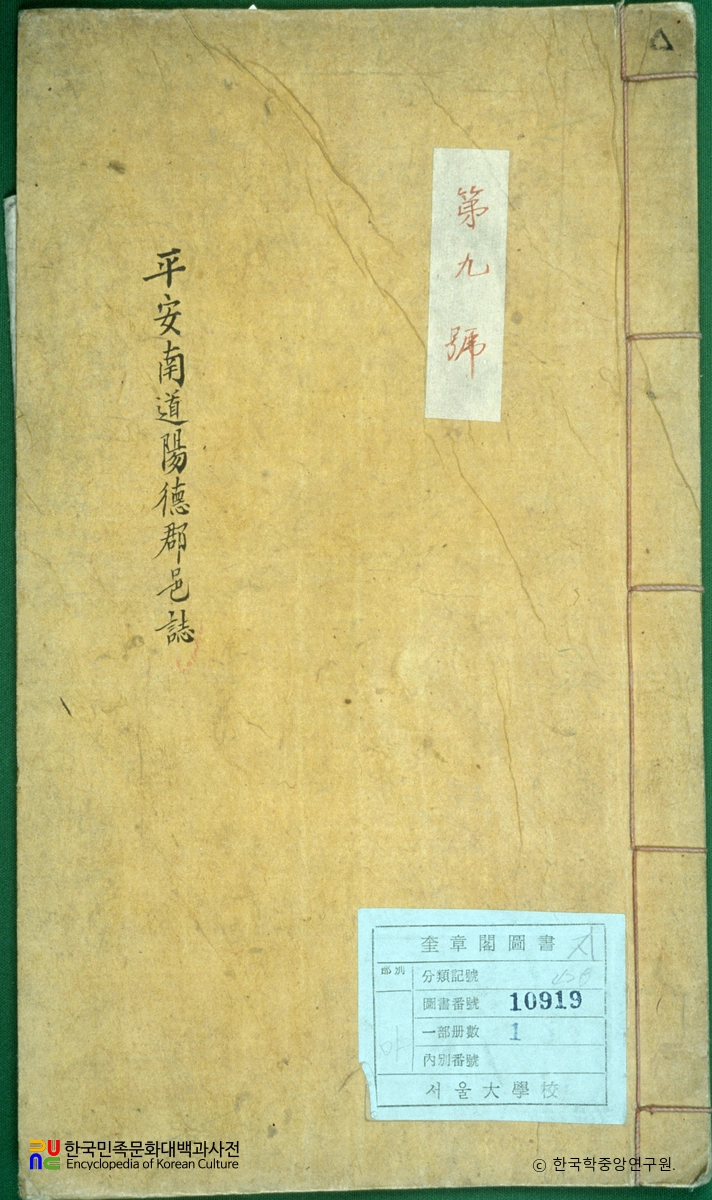 第九號
平安南道陽德郡邑誌
奎章閣圖書
部別
分類記號
圖書番號 10919
一部册數 1
內別番號
서울大學校
한국민족문화대백과사전
Encyclopedia of Korean Culture
© 한국학중앙연구원.